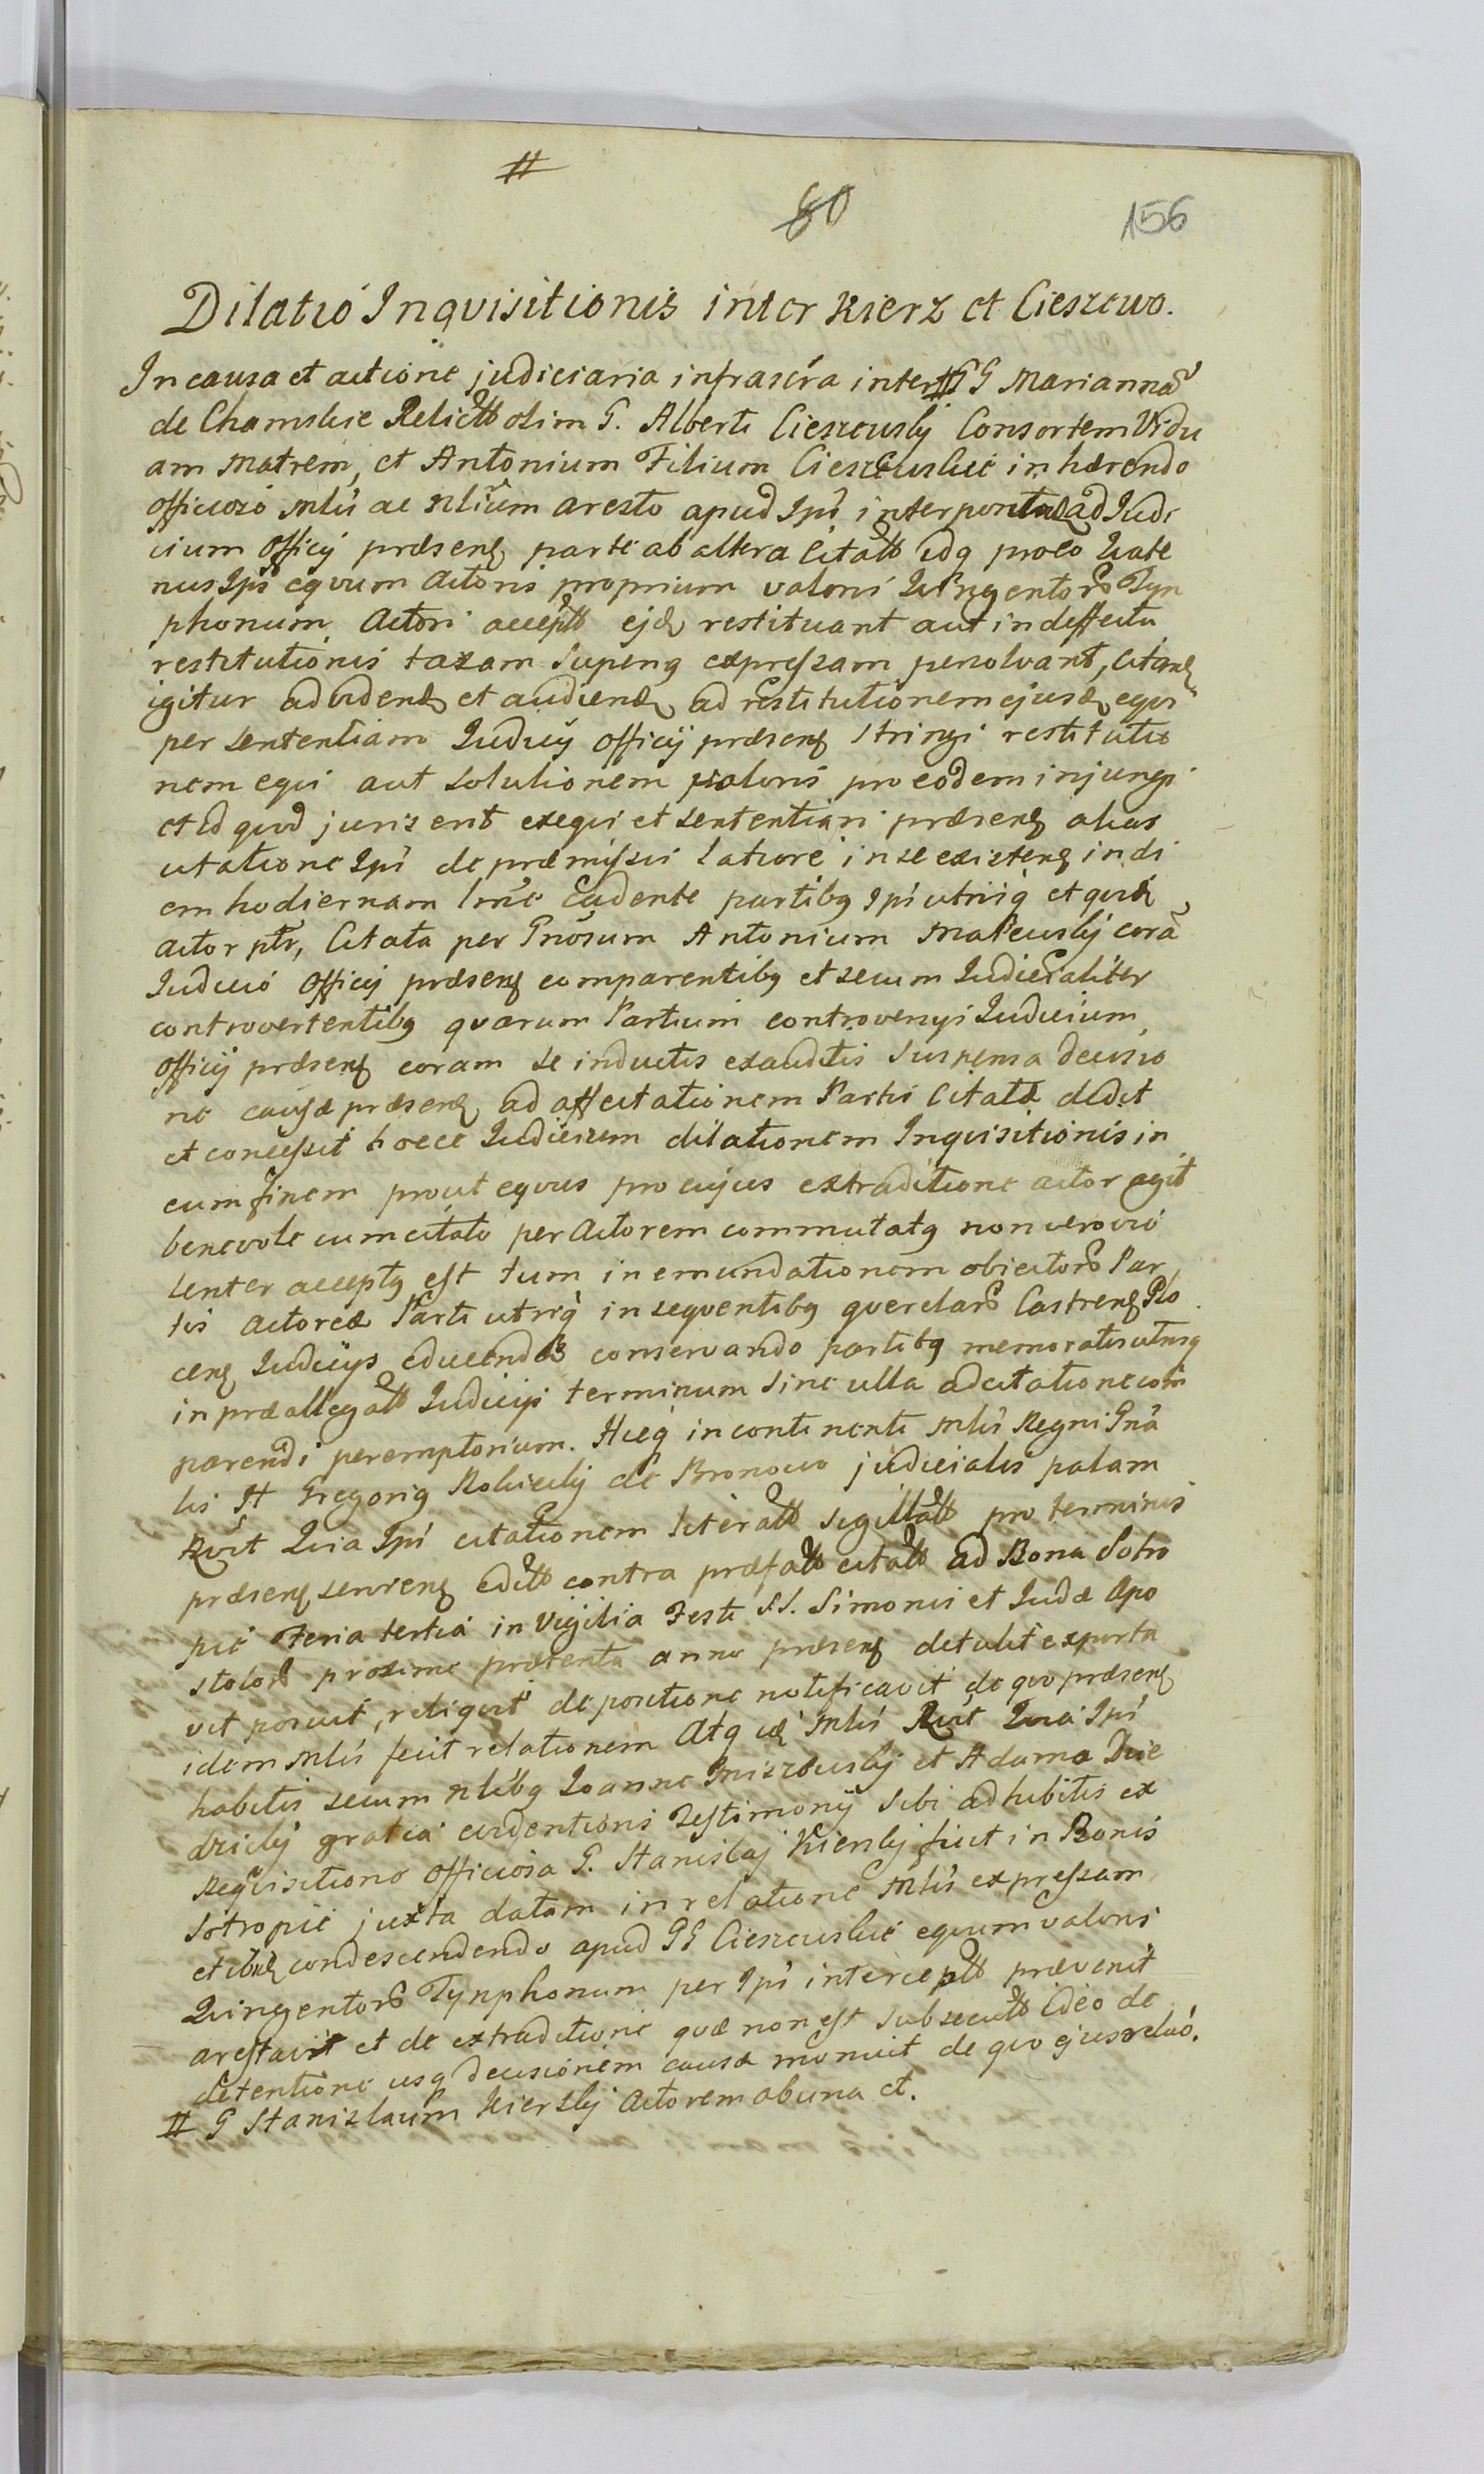 #
60
156
Dilatio Inqvisitionis inter Kierz et Cieszewo.
In causa et actione judiciaria infrascra inter # GG Marianna
de Chamskie Relictt olim G. Alberti Cieszewskj Consortem Vidu
am Matrem, et Antonium Filium Cieszewskie in hærendo
officioso Mlis ac Nlium aresto apud Ipi interposita ad Judi
cium Officij præsenq parte ab altera Citatt idq pro eo Qvate
nus Ipi eqvum Actoris proprium valoris Qvingentor Tyn
phonum Actori acceptt ejd restituant aut in deffectu
restitutionis taxam superiq expressam persolvant, Citanq
igitur ad videnđ et audienđ ad restitutionem ejusđ eqvi
per sententiam Judicij officij præsenq stringi restitutio
nem eqvi aut solutionem valoris pro eodem injungi
et id qvod juris erit exeqvi et sententiari præsenq alias
citatione Ipi de præmissis latiore in se existenq in di
em hodiernam lime cadente partibq Ipi utriiq et qvid
actor ptr, Citata per Gnosum Antonium Makewskj cora
Judicio Officij præsenq comparentibq et secum Judicialiter
controvertentibq qvarum Partium controversijs Judicium
Officij præsenq coram se inductis exauditis suspensa decisio
ne causæ præsenq ad affectationem Partis Citatæ dedit
et concessit hocce Judicium dilationem Inqvisitionis in
eum finem prout eqvus pro cujus extraditione actor agit
benevole cum citato per Actorem commutatq non vero vio
lenter acceptq est tum in emundationem obiector Par
tis Actoreæ Parti utriq in seqventibq qverelar Castrenq Plo
cenq Judicijs educendæ conservando partibq memoratis utrisq
in præallegatt Judicijs terminum sine ulla adcitatione com
parendi peremptorium. Hicq in continenti Mlis Regni Gna
lis H Gregoriq Rokickj de Bronowo judicialis palam
Rvit Qvia Ipi citationem literatt sigillatt pro terminis
præsenq servienq editt contra præfatt citatt ad Bona Sotro
pie Feria tertia in Vigilia Festi SS. Simonis et Judæ Apo
stolor proxime præterita anno præsenq detulit exporta
vit posuit, reliqvit de positione notificavit de qvo præsenq
idem Mlis fecit relationem Atq id Mlis Rvit Qvia Ipi
habitis secum Nlibq Joanne Gniszewskj et Adamo Dzie
dzickj gratia evidentioris Testimonij sibi adhibitis ex
Reqvisitione officiosa G. Stanislaj Kierskj fuit in Bonis
Sotropie juxta datam in relatione Mlis expressam
et ibiđ condescendendo apud GG Cieszewskie eqvum valoris
Qvingentor Tynphonum per Ipi interceptt prævenit
arestavit et de extraditione qvæ non est subsecutt ideo de
detentione usq decisionem causæ monuit de qvo ejus relaō.
# G Stanislaum Kierskj Actorem ab una et.